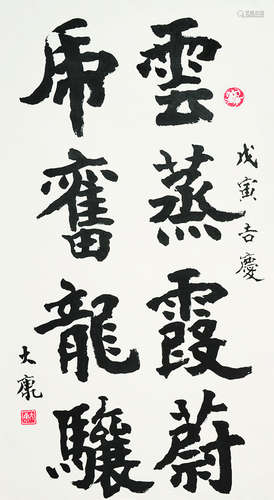 雲蒸霞蔚
虎奮龍驤
戊寅吉慶
大康